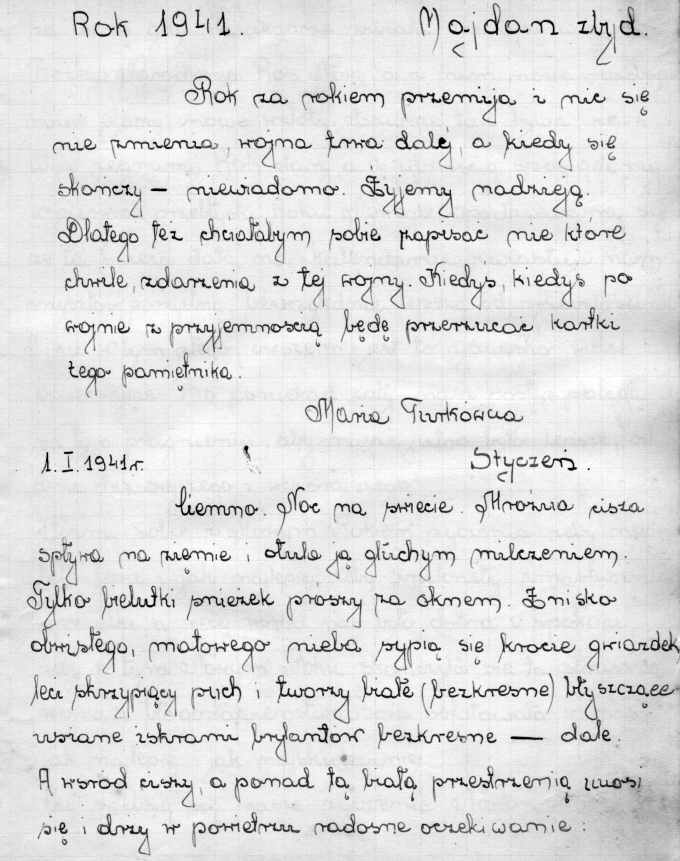 Rok 1941. Majdan zbyd.
Rok za rokiem przemija i nic się
nie zmienia, wojna trwa dalej, a kiedy się
skonczy – niewiadomo. Żyjemy nadzieją.
Dlatego też chciałabym sobie zapisac nie które
chwile, zdarzenia z tej wojny. Kiedys, kiedys po
wojnie z przyjemnoscią będę przerzucac kartki
tego pamiętnika.
Maria Turkowicz
1.I.1941r. Styczeń.
Ciemno. Noc na swiecie. Mrozna cisza
spływa na ziemie i otula ją głuchym milczeniem.
Tylko bielutki sniezek proszy za oknem. Z nisko
obwisłego, matowego nieba sypią się krocie gwiazdek,
leci skrzypiący puch i tworzy białe (bezkresne) błyszczące
usiane iskrami brylantów bezkresne — dale.
A wsrod ciszy, a ponad tą białą przestrzenią unosi
się i drzy w powietrzu radosne oczekiwanie: